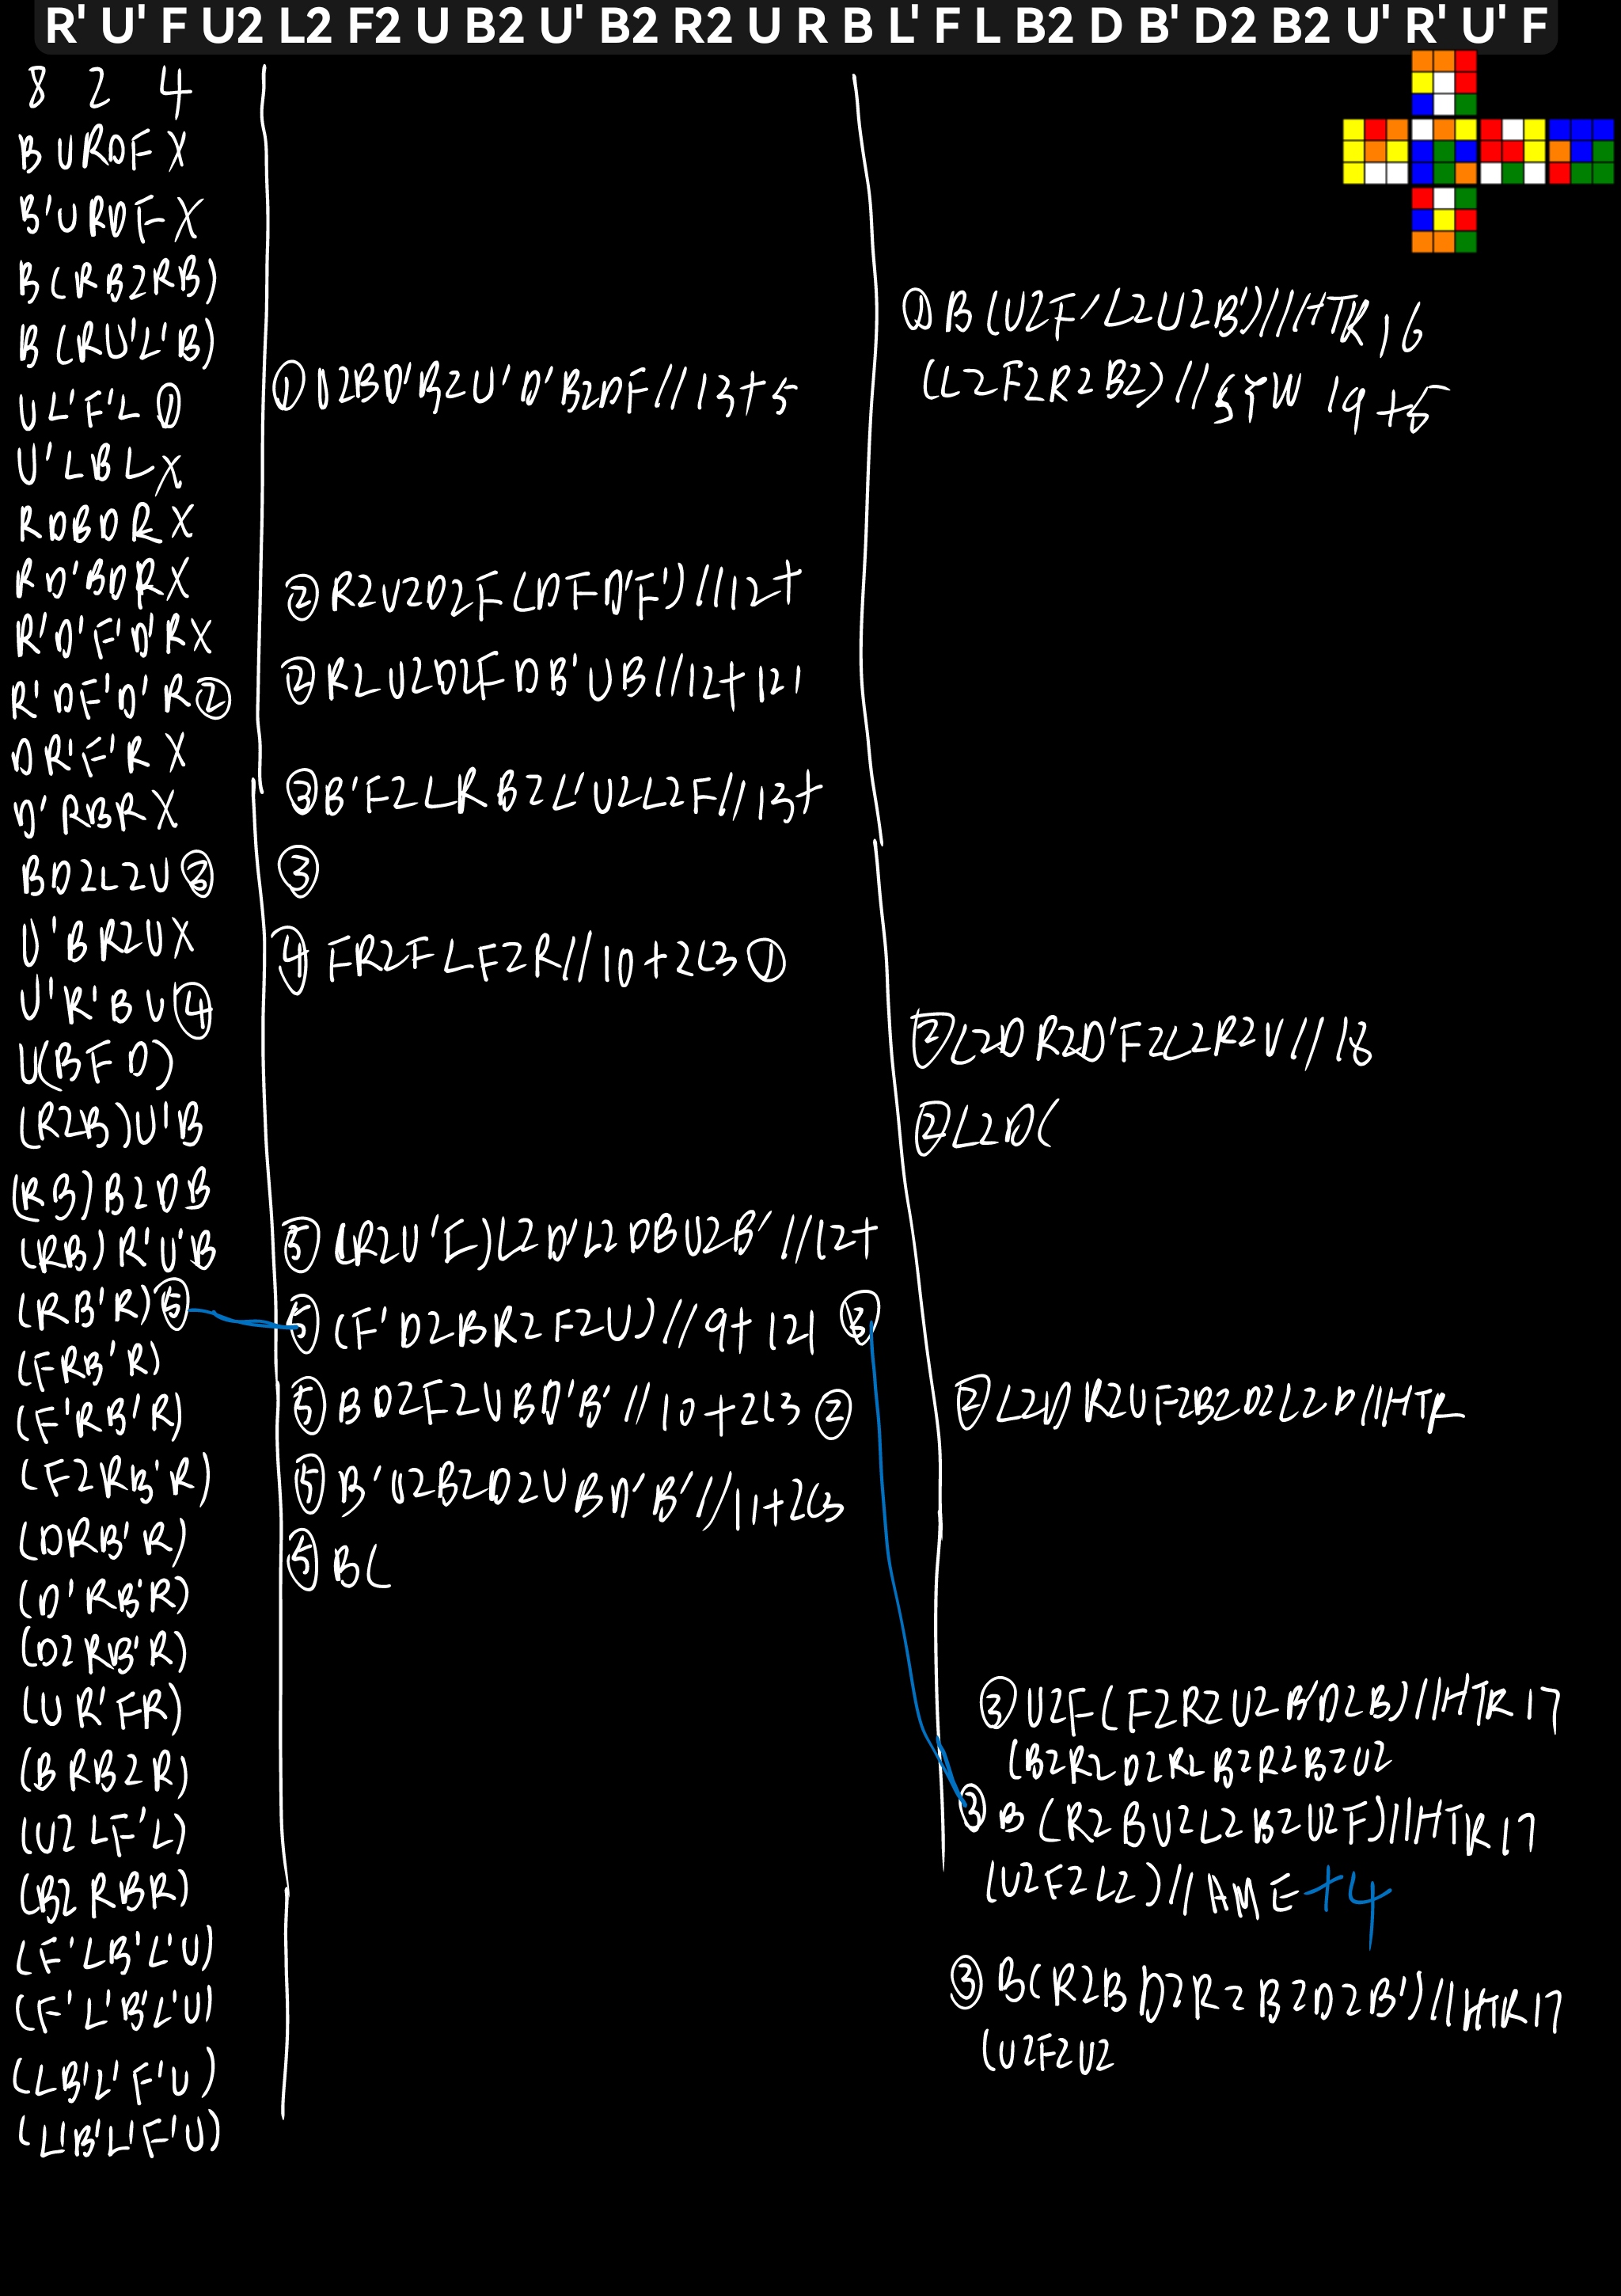 R' U' F U2 L2 F2 U B2 U' B2 R2 U R B L' F L B2 D B' D2 B2 U' R' U' F
8 2 4
B U R D F X
B' U R D F X
B (R B2 R B)
B (R U' L' B)
U L' F' L ①
U' L B L X
R D B D R X
R D' B D R X
R' D' F' D' R X
R' D F' D' R ②
D R' F' R X
D' R B R X
B D2 L2 U ③
U' B R2 U X
U' R' B U ④
U (B F D)
(R2 B) U' B
(R B) B2 D B
(R B) R' U' B
(R B' R) ⑤
(F R B' R)
(F' R B' R)
(F2 R B' R)
(D R B' R)
(D' R B' R)
(D2 R B' R)
(U R' F R)
(B R B2 R)
(U2 L F' L)
(B2 R B R)
(F' L B' L' U)
(F' L' B' L' U)
(L B' L' F' U)
(L' B' L' F' U)
① D2 B D' B2 U' D' B2 D F // 13+5
② R2 U2 D2 F (D F D' F') // 12+
② R2 U2 D2 F D B' U B // 12+ 121
③ B' F2 L R B2 L' U2 L2 F // 13+
③
④ F R2 F L F2 R // 10+2c3 ①
⑤ (R2 U' L) L2 D' L2 D B U2 B' // 12+
⑤ (F' D2 B R2 F2 U) // 9+ 121 ③
⑤ B D2 F2 U B D' B' // 10+2c3 ②
⑤ B' U2 B2 D2 U B D' B' // 11+2c3
⑤ B (
① B (U2 F' L2 U2 B') // HTR 16
(L2 F2 R2 B2) // 19+5
② L2 D R2 D' F2 L2 R2 U // 18
② L2 D (
② L2 D R2 U F2 B2 D2 L2 D // HTR
③ U2 F (F2 R2 U2 B' D2 B) // HTR 17
(B2 R2 D2 R2 B2 R2 B2 U2
③ B (R2 B U2 L2 B2 U2 F) // HTR 17
(U2 F2 L2) // AME +4
③ B (R2 B D2 R2 B2 D2 B') // HTR 17
(U2 F2 U2